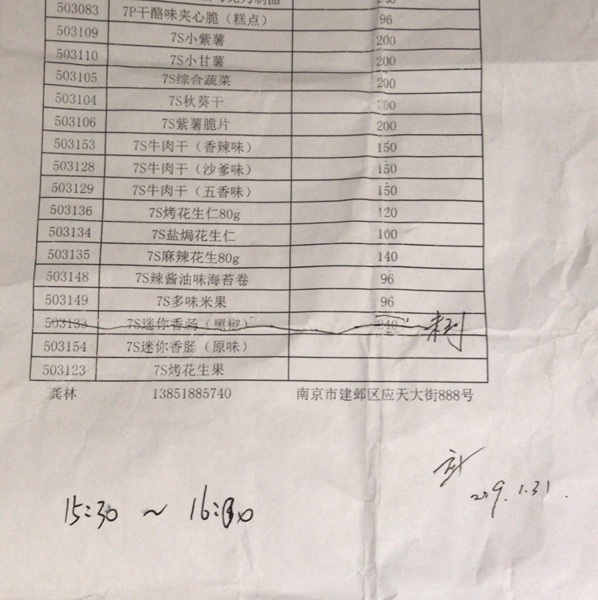 503083 7P干酪味夹心脆（糕点） 96
503109 7S小紫薯 200
503110 7S小甘薯 200
503105 7S综合蔬菜 200
503104 7S秋葵干 200
503106 7S紫薯脆片 200
503153 7S牛肉干（香辣味） 150
503128 7S牛肉干（沙爹味） 150
503129 7S牛肉干（五香味） 150
503136 7S烤花生仁80g 120
503134 7S盐焗花生仁 100
503135 7S麻辣花生80g 140
503148 7S辣酱油味海苔卷 96
503149 7S多味米果 96
503133 7S迷你香肠（黑椒） 240
503154 7S迷你香肠（原味）
503123 7S烤花生果
龚林 13851885740 南京市建邺区应天大街888号
15:30 ~ 16:30